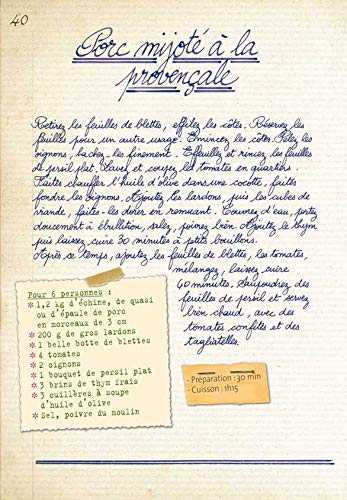 40
Porc mijoté à la
provençale
Retirez les feuilles de blettes, effilez les côtes. Réservez les
feuilles pour un autre usage. Emincez les côtes. Pelez les
oignons, hachez-les finement. Effeuillez et rincez les feuilles
de persil plat. Lavez et coupez les tomates en quartiers.
Faites chauffer l'huile d'olive dans une cocotte, faites
fondre les oignons. Ajoutez les lardons, puis les cubes de
viande, faites-les dorer en remuant. Couvrez d'eau, portez
doucement à ébullition, salez, poivrez bien. Ajoutez le thym
puis laissez cuire 30 minutes à petits bouillons.
Après ce temps, ajoutez les feuilles de blettes, les tomates,
mélangez, laissez cuire
40 minutes. Saupoudrez des
feuilles de persil et servez
bien chaud, avec des
tomates confites et des
tagliatelles.
Pour 6 personnes :
* 1,2 kg d'échine, de quasi
ou d'épaule de porc
en morceaux de 3 cm
* 200 g de gros lardons
* 1 belle botte de blettes
* 4 tomates
* 2 oignons
* 1 bouquet de persil plat
* 3 brins de thym frais
* 3 cuillères à soupe
d'huile d'olive
* Sel, poivre du moulin
- Préparation : 30 min
- Cuisson : 1h15